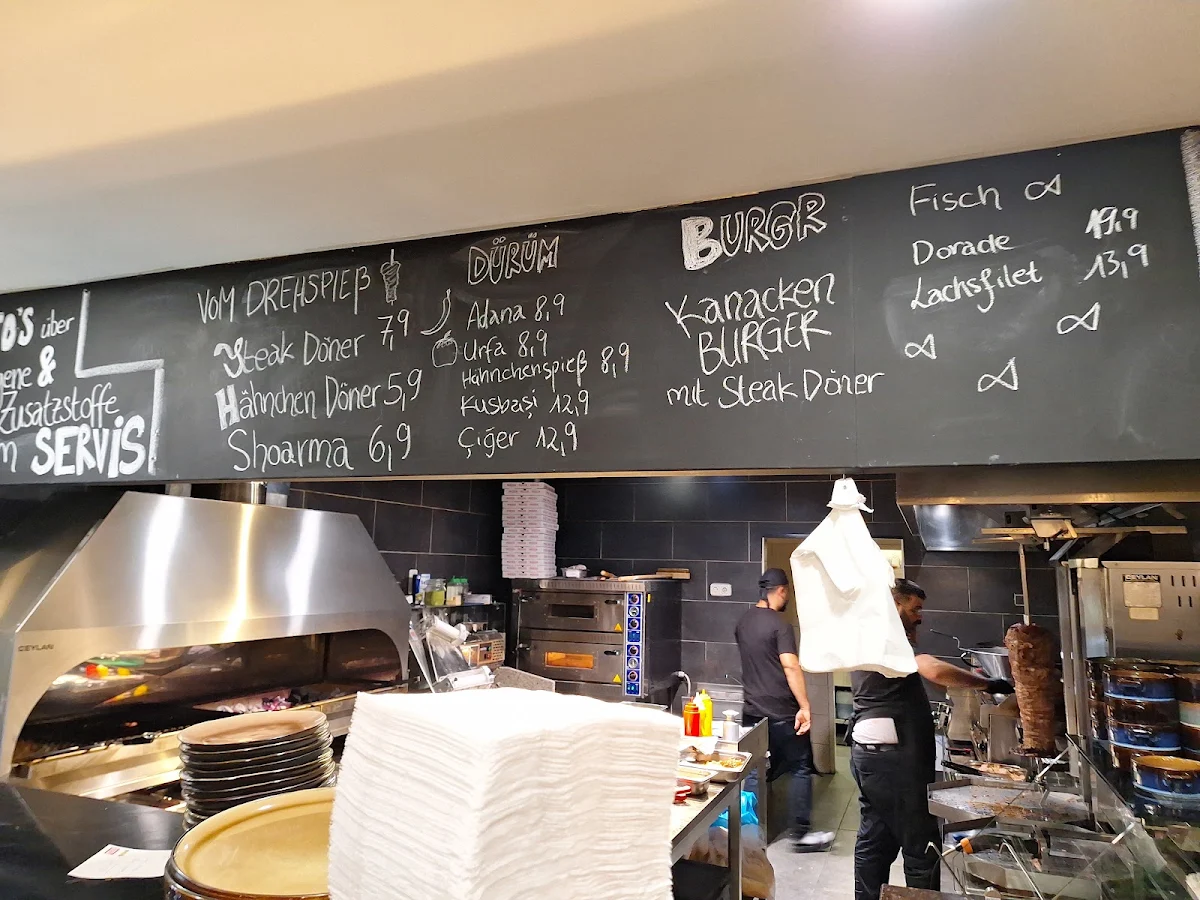 O'S über
ene &
Zusatzstoffe
m SERVIS
VOM DREHSPIEß
Steak Döner 7,9
Hähnchen Döner 5,9
Shoarma 6,9
DÜRÜM
Adana 8,9
Urfa 8,9
Hähnchenspieß 8,9
Kusbaşi 12,9
Çiğer 12,9
BURGR
Kanacken
BURGER
mit Steak Döner
Fisch
Dorade 19,9
Lachsfilet 13,9
CEYLAN
CEYLAN